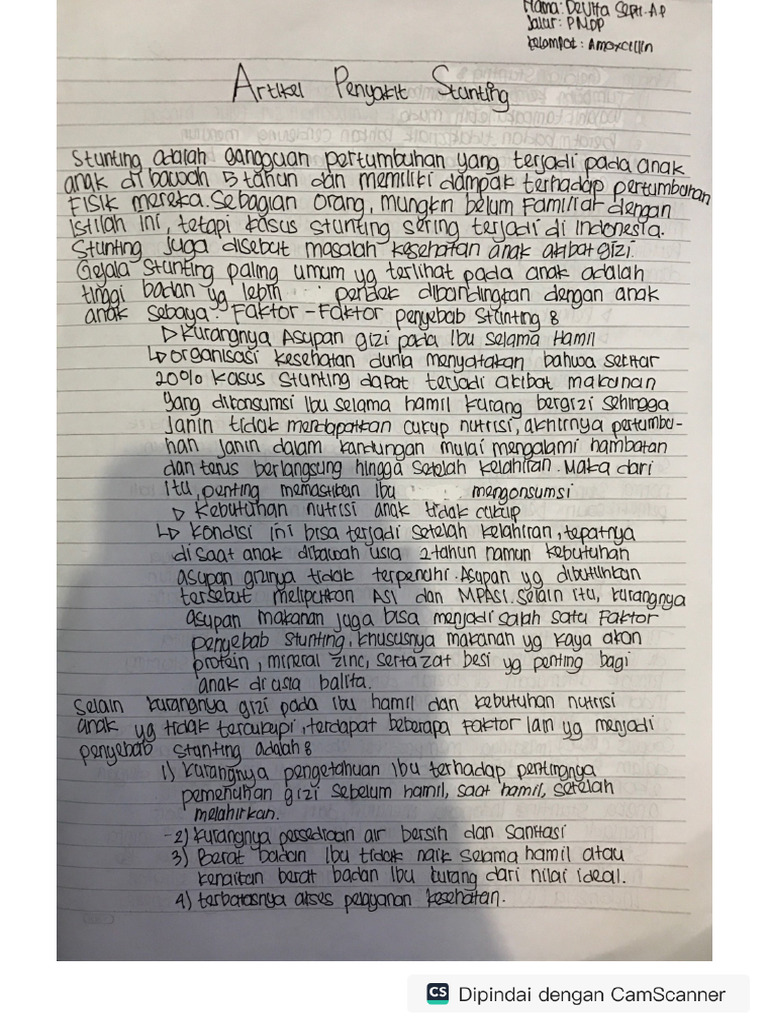 Nama: Devita Sept. A.P
Jalur: PMDP
Kelompok: Amoxcillin
Artikel Penyakit Stunting
Stunting adalah gangguan pertumbuhan yang terjadi pada anak
anak di bawah 5 tahun dan memiliki dampak terhadap pertumbuhan
Fisik mereka. Sebagian orang, mungkin belum Familiar dengan
istilah ini, tetapi kasus stunting sering terjadi di Indonesia.
Stunting juga disebut masalah kesehatan anak akibat gizi.
Gejala Stunting paling umum yg terlihat pada anak adalah
tinggi badan yg lebih pendek dibandingkan dengan anak
anak sebaya. Faktor-Faktor penyebab Stunting :
▷ Kurangnya Asupan gizi pada Ibu selama Hamil
↳ organisasi kesehatan dunia menyatakan bahwa sekitar
20% kasus stunting dapat terjadi akibat makanan
yang dikonsumsi Ibu selama hamil kurang bergizi sehingga
Janin tidak mendapatkan cukup nutrisi, akhirnya pertumbu-
han Janin dalam kandungan mulai mengalami hambatan
dan terus berlangsung hingga setelah kelahiran. Maka dari
itu, penting memastikan Ibu mengonsumsi
▷ Kebutuhan nutrisi anak tidak cukup
↳ Kondisi ini bisa terjadi setelah kelahiran, tepatnya
di saat anak dibawah usia 2 tahun namun kebutuhan
asupan gizinya tidak terpenuhi. Asupan yg dibutuhkan
tersebut meliputkan ASI dan MPASI. Selain itu, kurangnya
asupan makanan juga bisa menjadi salah satu Faktor
penyebab Stunting, khususnya makanan yg kaya akan
protein, mineral zinc, serta zat besi yg penting bagi
anak di usia balita.
Selain kurangnya gizi pada ibu hamil dan kebutuhan nutrisi
anak yg tidak tercukupi, terdapat beberapa Faktor lain yg menjadi
penyebab Stunting adalah :
1) Kurangnya pengetahuan Ibu terhadap pentingnya
pemenuhan gizi sebelum hamil, saat hamil, setelah
melahirkan.
-2) Kurangnya persediaan air bersih dan Sanitasi
3) Berat badan Ibu tidak naik selama hamil atau
kenaikan berat badan Ibu kurang dari nilai ideal.
4) terbatasnya akses pelayanan kesehatan.
CS Dipindai dengan CamScanner